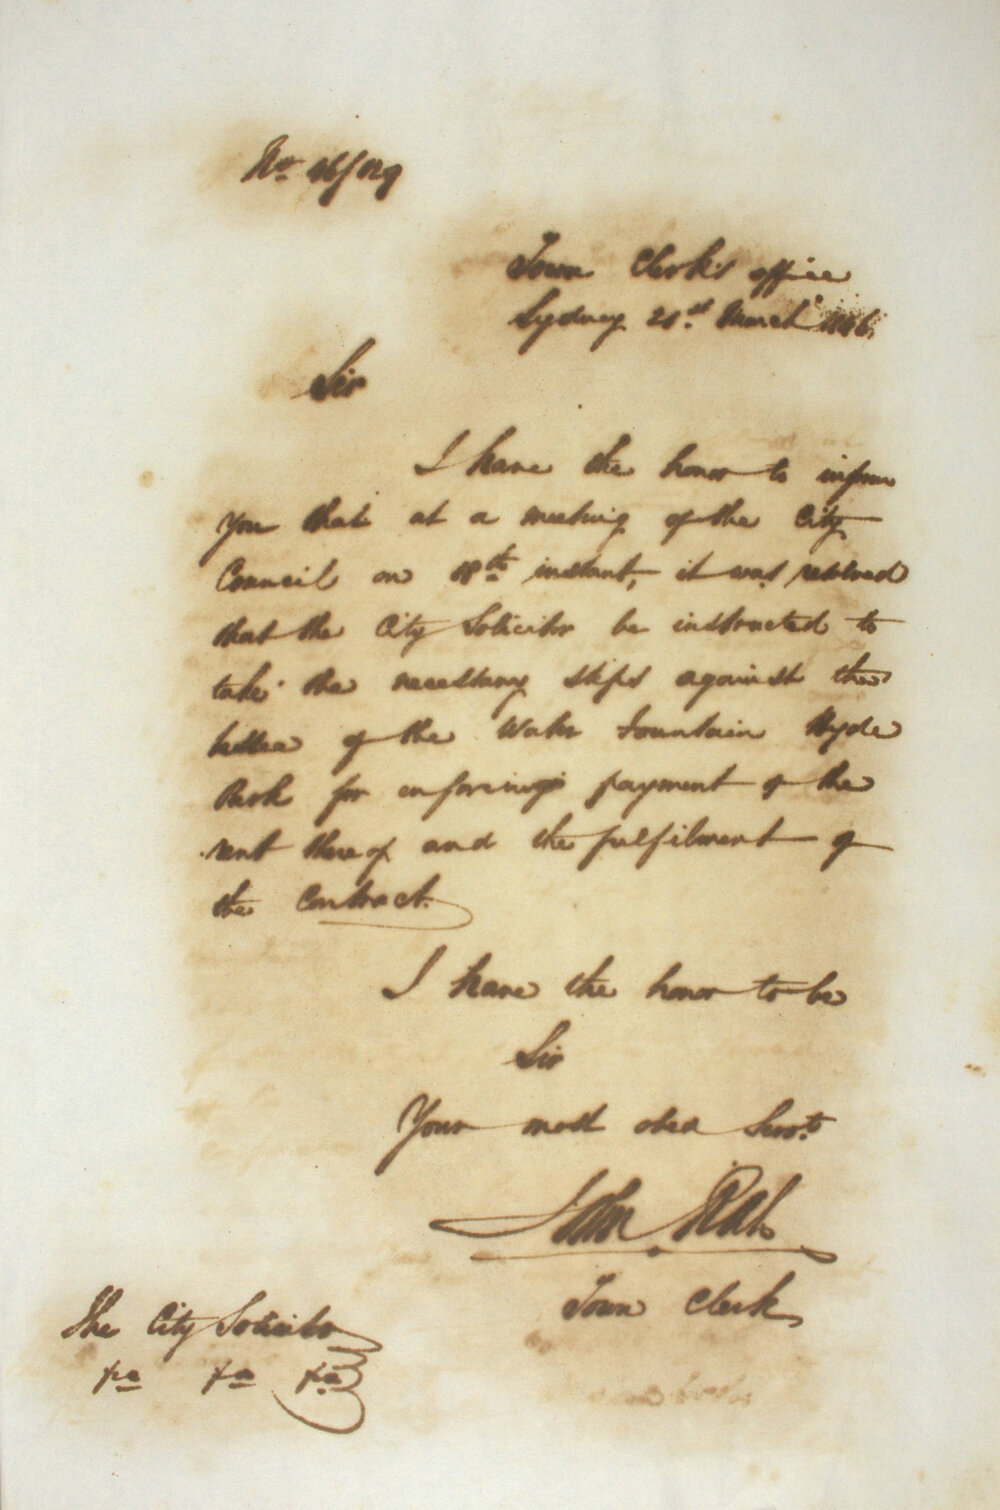 No. 46/129
Town Clerk's office
Sydney 21st March 1846.
Sir
I have the honor to inform
you that at a meeting of the City
Council on 18th instant, it was resolved
that the City Solicitor be instructed to
take the necessary steps against the
lessee of the Water Fountain Hyde
Park for enforcing payment of the
rent thereof and the fulfilment of
the Contract.
I have the honor to be
Sir
Your most obed Servt
John
Town Clerk
The City Solicitor